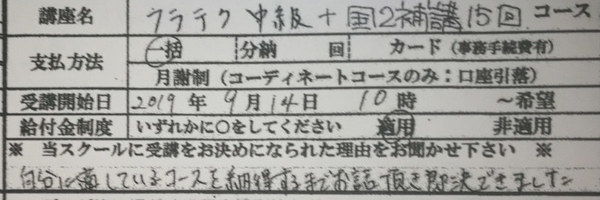 講座名 フラテク中級+国12補講15回 コース
支払方法 一括 分納 回 カード(事務手続費有)
月謝制(コーディネートコースのみ:口座引落)
受講開始日 2019年9月14日 10時 ~希望
給付金制度 いずれかに○をしてください 適用 非適用
※ 当スクールに受講をお決めになられた理由をお聞かせ下さい ※
自分に適しているコースを納得するまでお話頂き即決できました